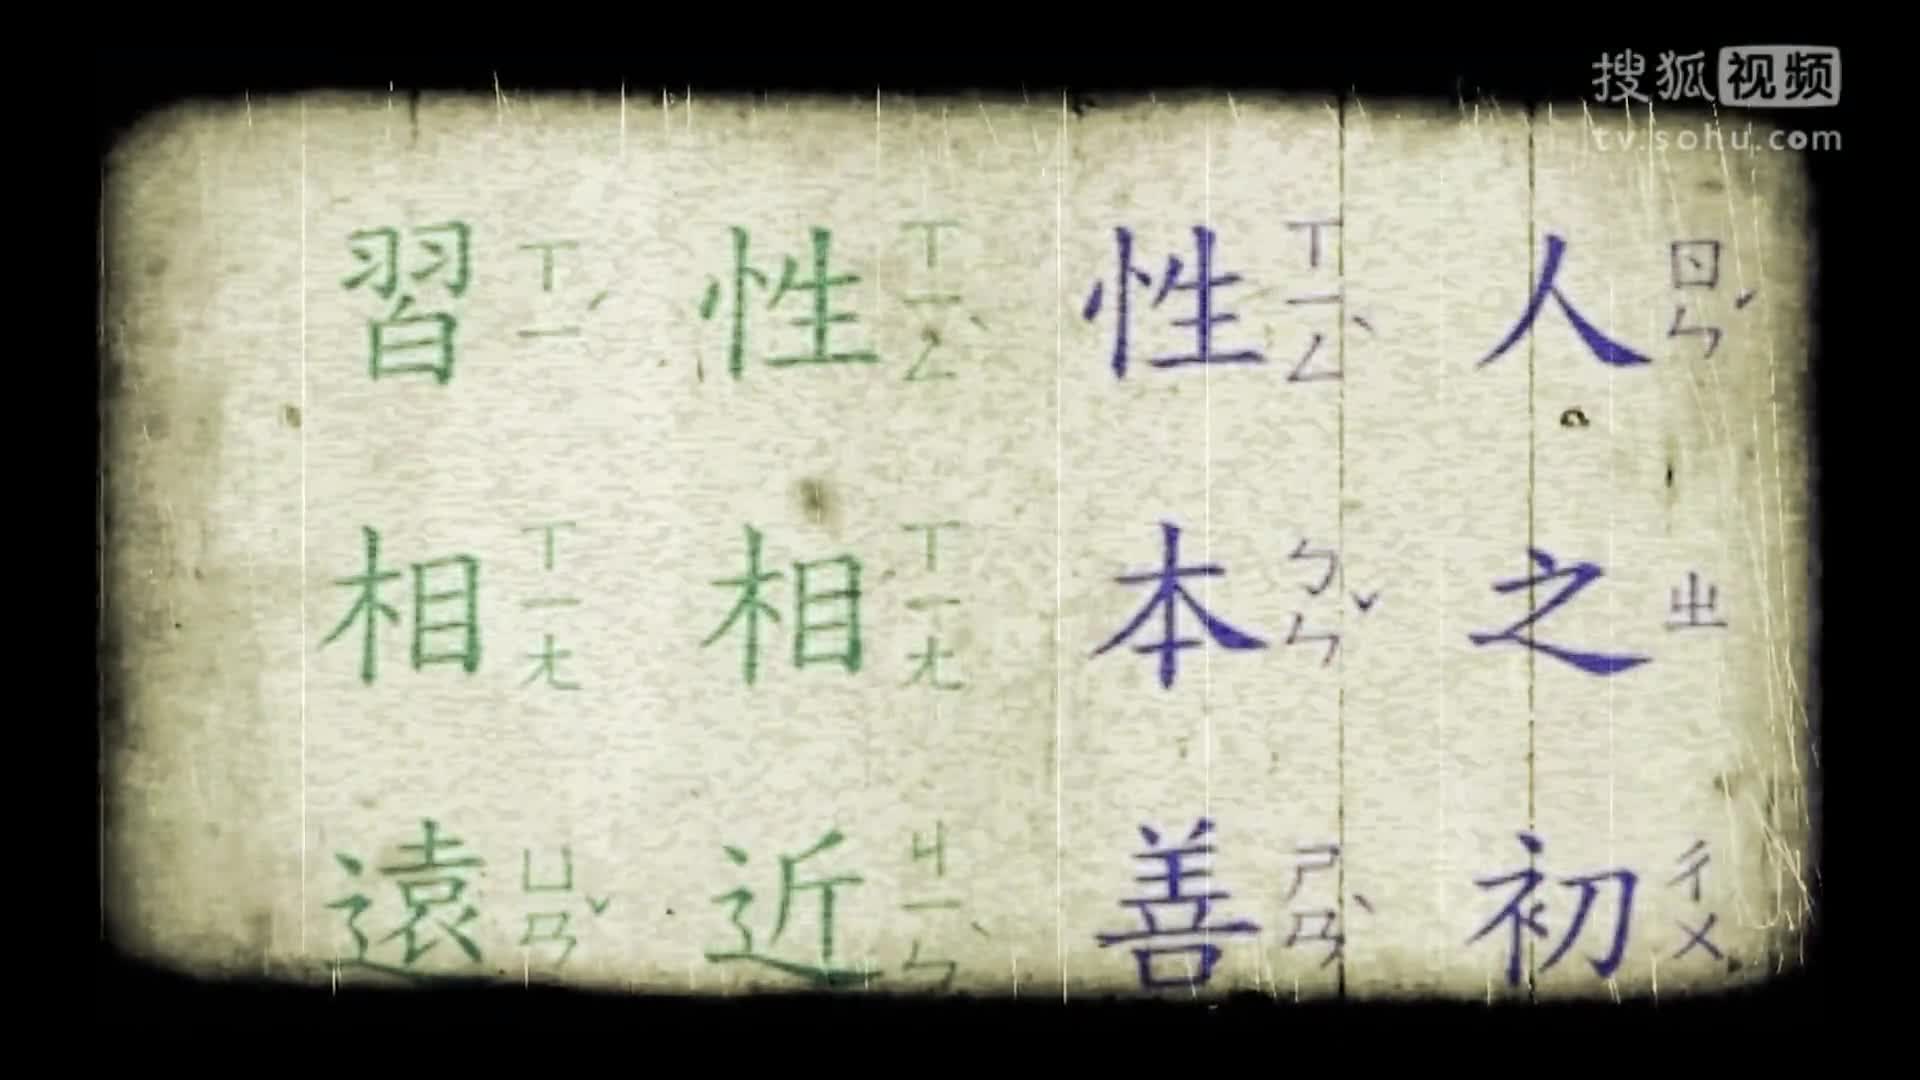 搜狐视频
tv.sohu.com
人ㄖㄣˊ之ㄓ初ㄔㄨ
性ㄒㄧㄥˋ本ㄅㄣˇ善ㄕㄢˋ
性ㄒㄧㄥˋ相ㄒㄧㄤ近ㄐㄧㄣˋ
習ㄒㄧˊ相ㄒㄧㄤ遠ㄩㄢˇ